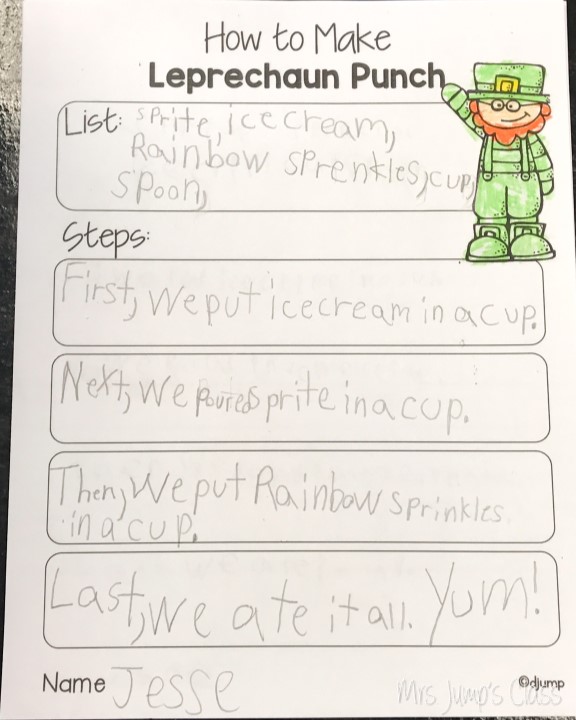 How to Make
Leprechaun Punch
List: sprite, ice cream,
Rainbow sprenkles, cup,
spoon,
Steps:
First, We put ice cream in a cup.
Next, We poured sprite in a cup.
Then, We put Rainbow sprinkles
in a cup.
Last, we ate it all. Yum!
Name Jesse
©djump
Mrs Jump's Class